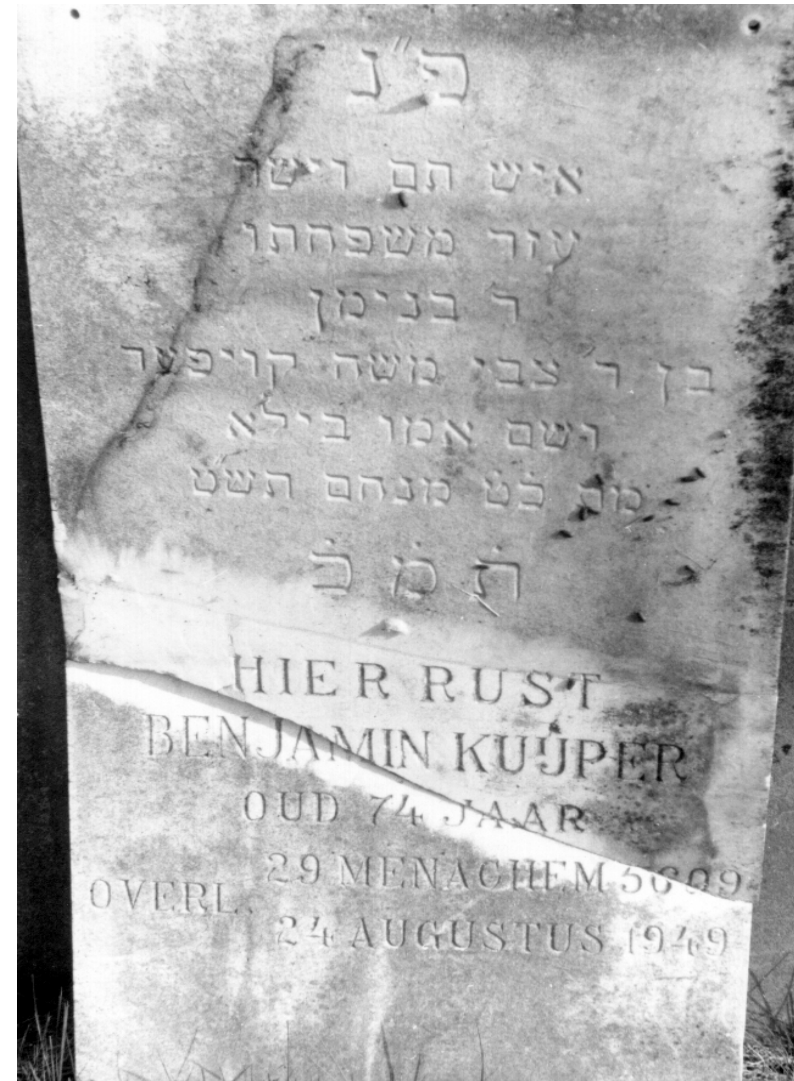 פ״נ
איש תם וישר
עזר משפחתו
ר׳ בנימן
בן ר׳ צבי משה קויפער
ושם אמו בילא
מת כט מנחם תשט
ת מ כ
HIER RUST
BENJAMIN KUIJPER
OUD 74 JAAR
OVERL. 29 MENACHEM 5609
24 AUGUSTUS 1949